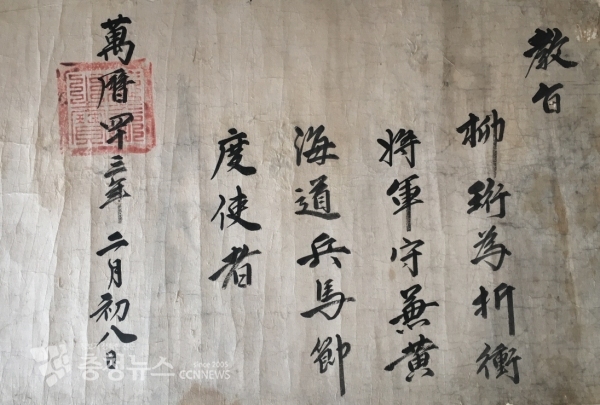 教旨
柳珩為折衝
將軍守兼黃
海道兵馬節
度使者
萬曆四十三年二月初八日
충청뉴스
Since 2005
CCNNEWS